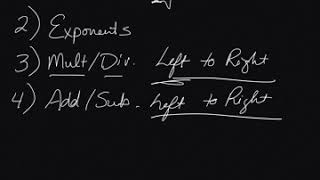 2) Exponents
3) Mult/Div. Left to Right
4) Add/Sub. Left to Right